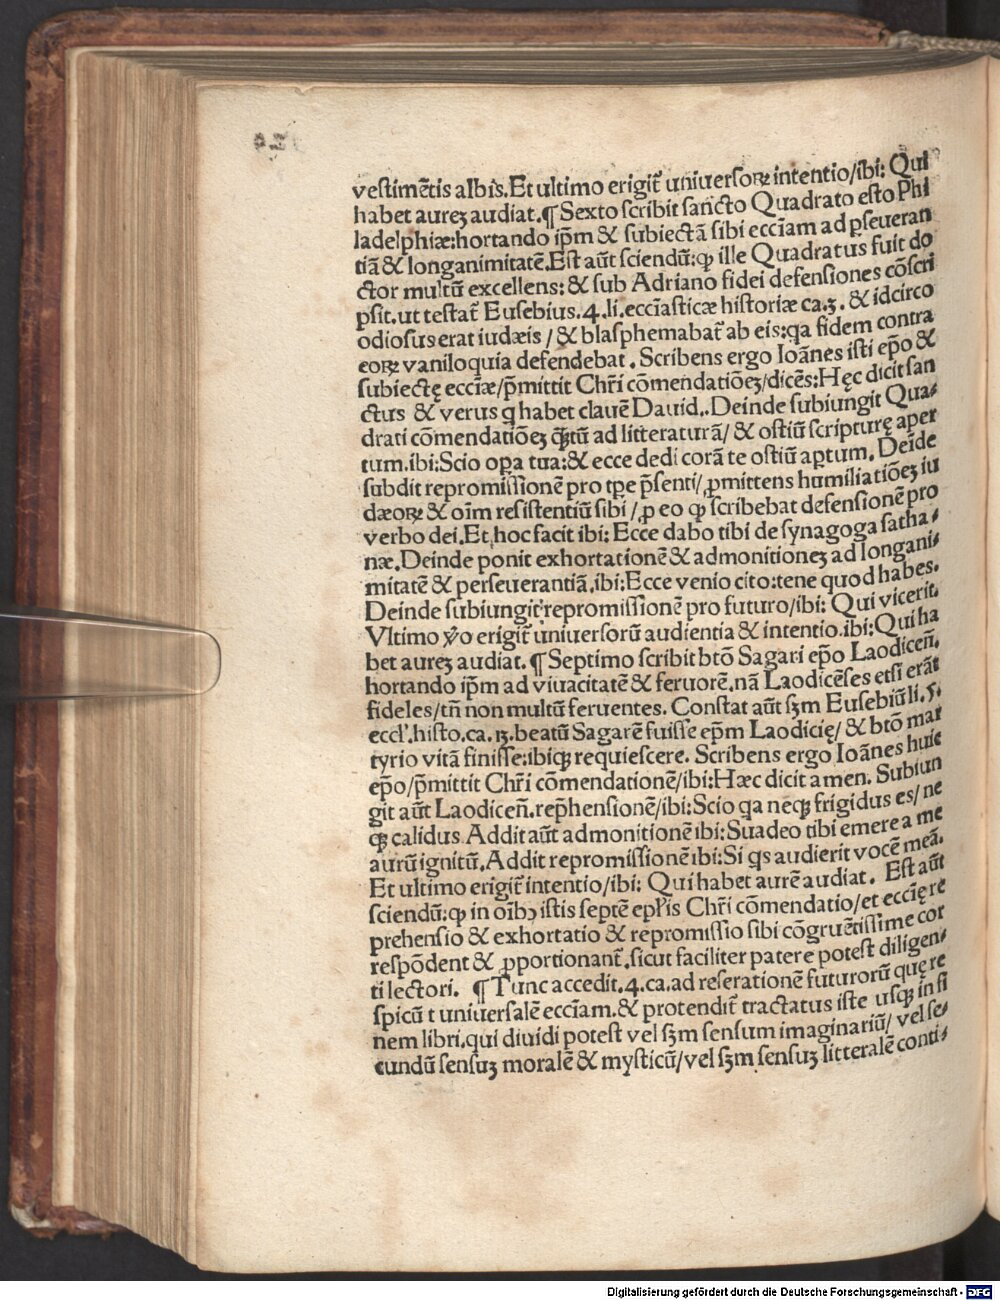 vestimẽtis albis.Et ultimo erigit̃ uniuersoꝝ intentio/ibi: Qui
habet aureꝫ audiat.¶Sexto scribit sancto Quadrato esto Phi
ladelphiæ:hortando ip̃m & subiectã sibi ecc̃iam ad ꝑseueran
tiã & longanimitatẽ.Est aũt sciendũ:ꝙ ille Quadratus fuit do
ctor multũ excellens: & sub Adriano fidei defensiones cõscri
psit.ut testat̃ Eusebius.4.li.ecc̃iasticæ historiæ ca.3. & idcirco
odiosus erat iudæis / & blasphemabat̃ ab eis:qa fidem contra
eoꝝ vaniloquia defendebat. Scribens ergo Ioãnes isti ep̃o &
subiectę ecc̃iæ/p̃mittit Chr̃i cõmendatiõeꝫ/dicẽs:Hęc dicit san
ctus & verus q habet clauẽ Dauid..Deinde subiungit Qua-
drati cõmendatiõeꝫ q̃ꝫtũ ad litteraturã/ & ostiũ scripturę aper
tum.ibi:Scio oꝑa tua:& ecce dedi corã te ostiũ aꝑtum. Deĩde
subdit repromissionẽ pro tꝑe p̃senti/ꝓmittens humiliatiõeꝫ iu
dæoꝝ & oĩm resistentiũ sibi /ꝓ eo ꝙ scribebat defensionẽ pro
verbo dei.Et hoc facit ibi: Ecce dabo tibi de synagoga satha-
næ.Deinde ponit exhortationẽ & admonitioneꝫ ad longani-
mitatẽ & perseuerantiã.ibi:Ecce venio cito:tene quod habes.
Deinde subiungit repromissionẽ pro futuro/ibi: Qui vicerit.
Vltimo ṽo erigit̃ uniuersorũ audientia & intentio.ibi:Qui ha
bet aureꝫ audiat. ¶Septimo scribit btõ Sagari ep̃o Laodiceñ.
hortando ip̃m ad viuacitatẽ & feruorẽ.nã Laodicẽses etsi erãt
fideles/tñ non multũ feruentes. Constat aũt sꝫm Eusebiũ li.5.
eccl'.histo.ca.13.beatũ Sagarẽ fuisse ep̃m Laodicię/ & btõ mar
tyrio vitã finisse:ibiqꝫ requiescere. Scribens ergo Ioãnes huic
ep̃o/p̃mittit Chr̃i cõmendationẽ/ibi:Hæc dicit amen. Subiun
git aũt Laodiceñ.rep̃hensionẽ/ibi:Scio qa neqꝫ frigidus es/ ne
qꝫ calidus Addit aũt admonitionẽ ibi:Suadeo tibi emere a me
aurũ ignitũ.Addit repromissionẽ ibi:Si qs audierit vocẽ meã.
Et ultimo erigit̃ intentio/ibi: Qui habet aurẽ audiat. Est aũt
sciendũ:ꝙ in oĩbꝰ istis septẽ epl'is Chr̃i cõmendatio/et ecc̃ię re
prehensio & exhortatio & repromissio sibi cõgruẽtissime cor
respõdent & ꝓportionant̃.sicut faciliter patere potest diligen-
ti lectori. ¶Tunc accedit.4.ca.ad reserationẽ futurorũ quę re
spiciũ t uniuersalẽ ecc̃iam.& protendit̃ tractatus iste usqꝫ in fi
nem libri.qui diuidi potest vel sꝫm sensum imaginariũ/ vel se-
cundũ sensuꝫ moralẽ & mysticũ/vel sꝫm sensuꝫ litteralẽ conti-
Digitalisierung gefördert durch die Deutsche Forschungsgemeinschaft - DFG